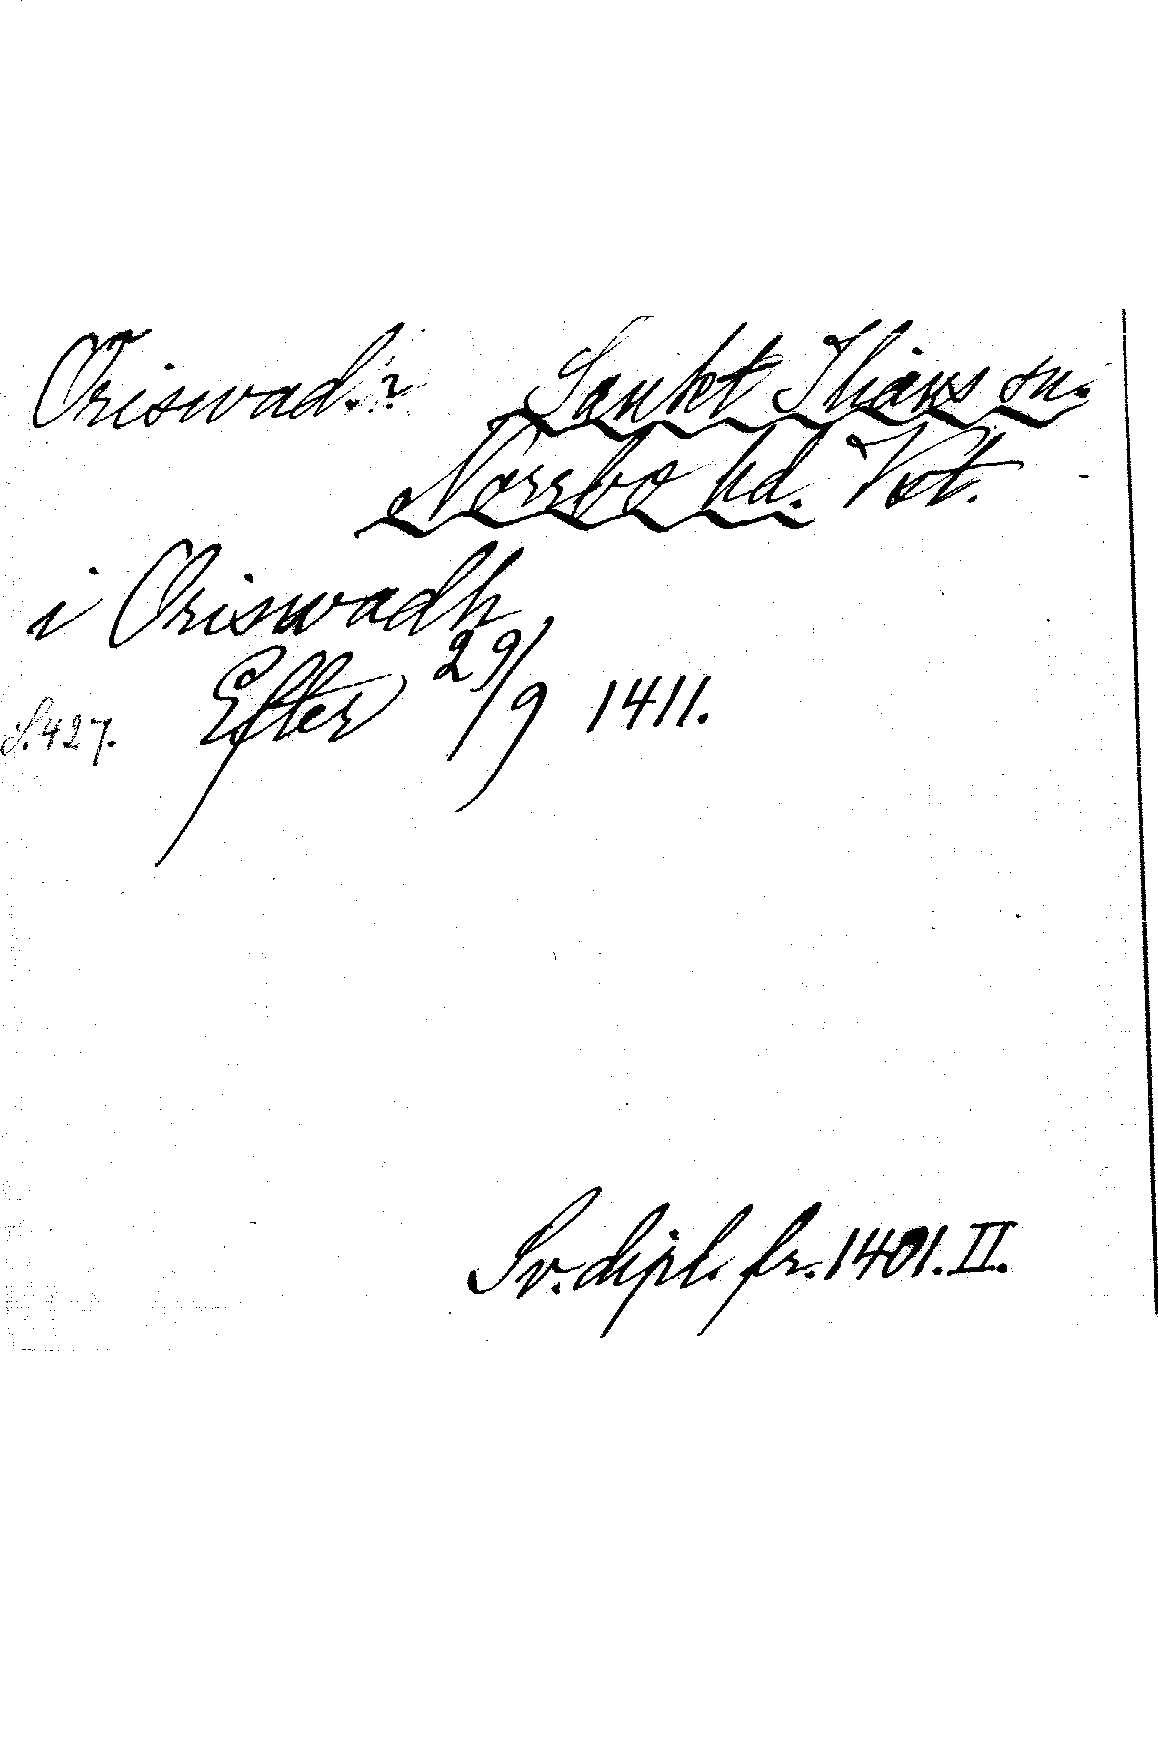 Oriswad.? Sankt Ilians sn.
Norrbo hd. Vst.
i Oriswadh
Efter 29/9 1411.
S. 427.
Sv. dipl. fr. 1401. II.